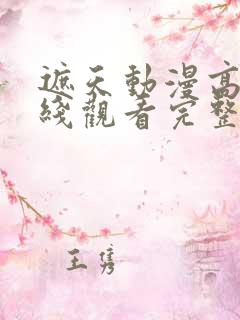 遮天動漫高
綫觀看完整
王隽